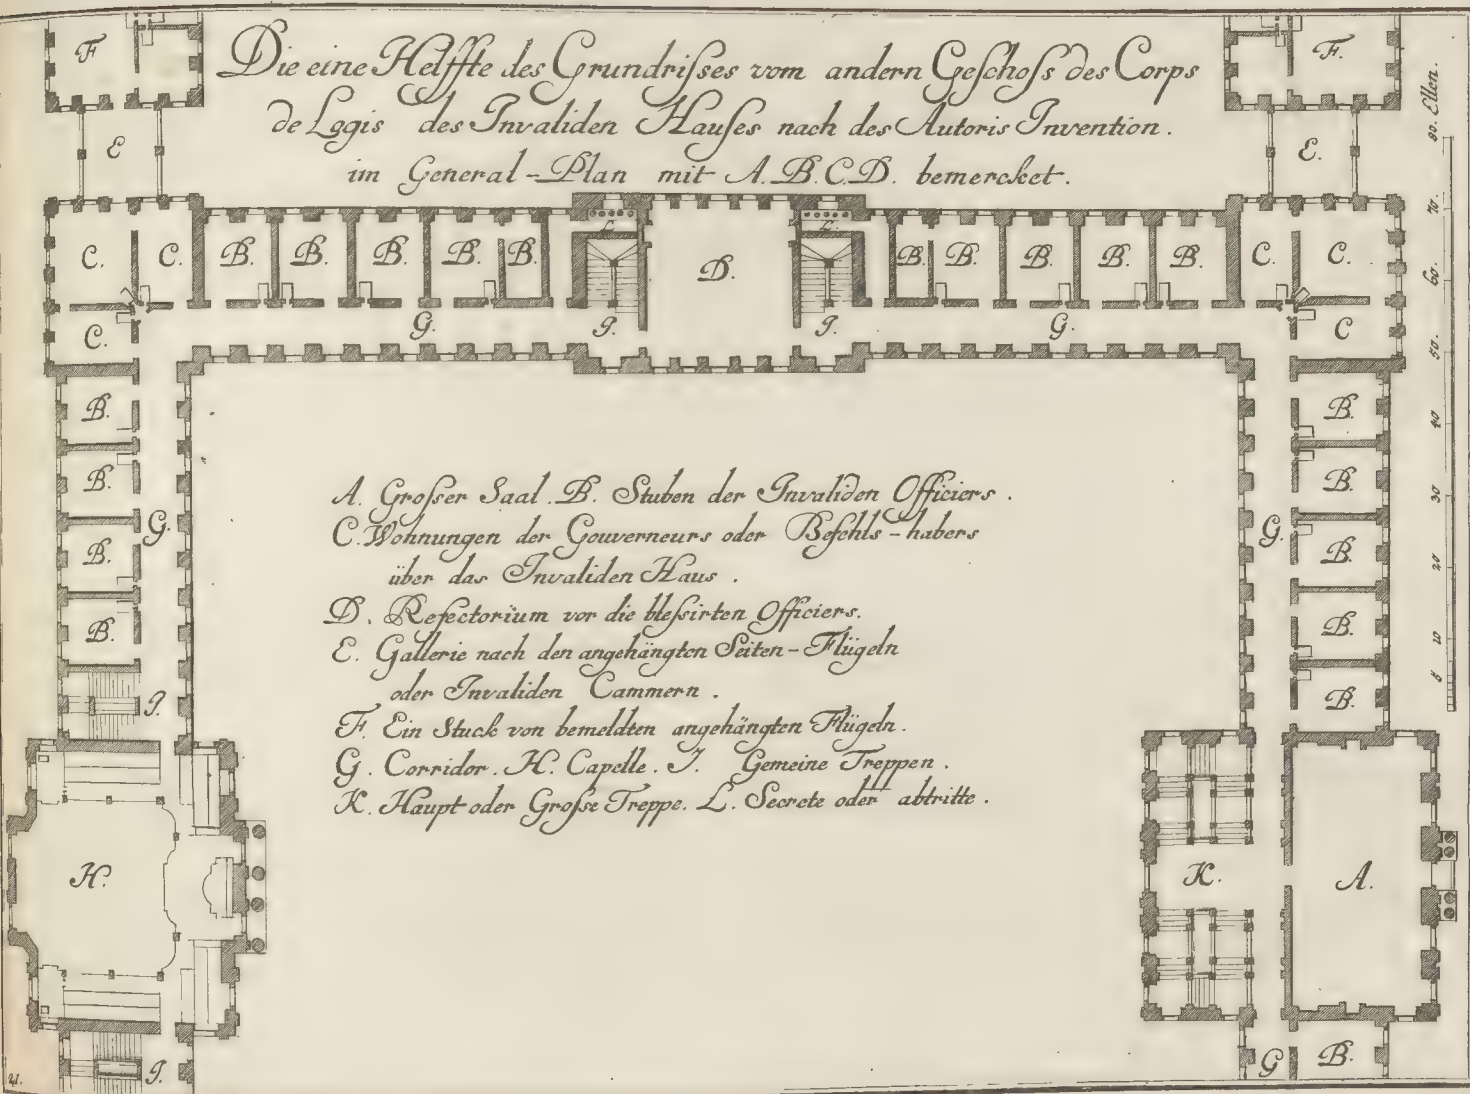 Die eine Helffte des Grundrisses vom andern Geschoss des Corps
de Logis des Invaliden Hauses nach des Autoris Invention.
im General-Plan mit A.B.C.D. bemercket.
F.
F.
E
E.
80. Ellen.
70.
60.
50.
40
30
20
10
5
C.
C.
B.
B.
B.
B.
B.
L.
D.
L.
B.
B.
B.
B.
B.
C.
C.
C.
G.
J.
J.
G.
C
B.
B.
B.
B.
G.
J.
B.
B.
B.
B.
B.
G.
A. Grosser Saal. B. Stuben der Invaliden Officiers.
C. Wohnungen der Gouverneurs oder Befehls-habers
über das Invaliden Haus.
D. Refectorium vor die blessirten Officiers.
E. Gallerie nach den angehängten Seiten-Flügeln
oder Invaliden Cammern.
F. Ein Stuck von bemeldten angehängten Flügeln.
G. Corridor. H. Capelle. J. Gemeine Treppen.
K. Haupt oder Grosse Treppe. L. Secrete oder abtritte.
H.
K.
A.
J.
G
B.
21.